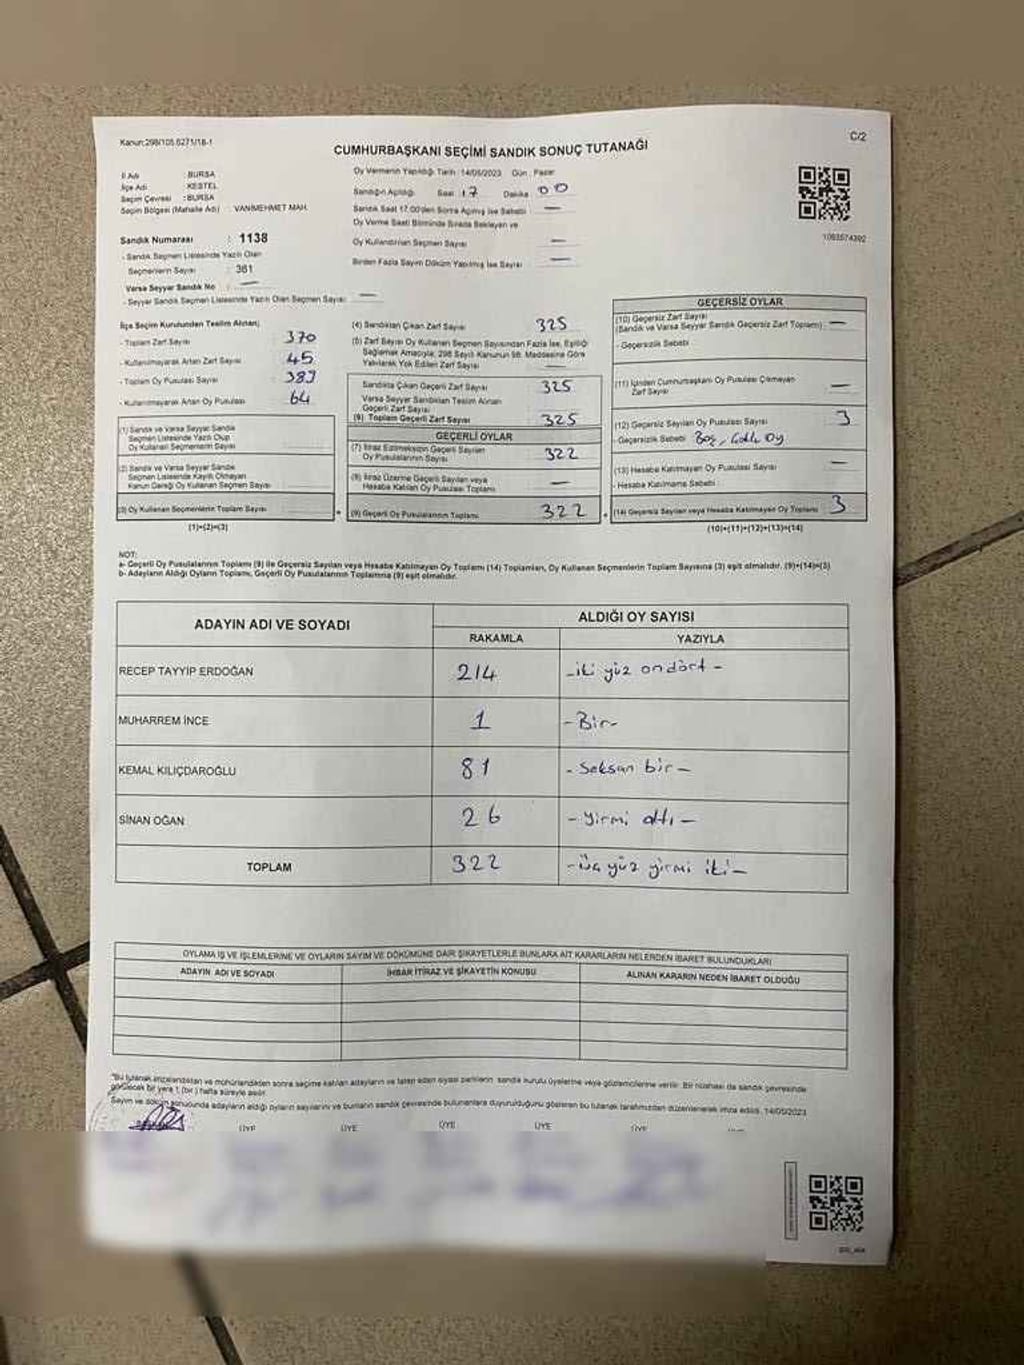 Kanun:298/105.6271/18-1
C/2
CUMHURBAŞKANI SEÇİMİ SANDIK SONUÇ TUTANAĞI
İl Adı : BURSA
İlçe Adı : KESTEL
Seçim Çevresi : BURSA
Seçim Bölgesi (Mahalle Adı) : VANİMEHMET MAH.
Sandık Numarası : 1138
- Sandık Seçmen Listesinde Yazılı Olan
Seçmenlerin Sayısı : 361
Varsa Seyyar Sandık No : —
- Seyyar Sandık Seçmen Listesinde Yazılı Olan Seçmen Sayısı: —
Oy Vermenin Yapıldığı Tarih :14/05/2023 Gün : Pazar
Sandığın Açıldığı Saat : 17 Dakika : 00
Sandık Saat 17.00'den Sonra Açılmış İse Sebebi : —
Oy Verme Saati Bitiminde Sırada Bekleyen ve
Oy Kullandırılan Seçmen Sayısı : —
Birden Fazla Sayım Döküm Yapılmış İse Sayısı : —
1093574392
İlçe Seçim Kurulundan Teslim Alınan;
- Toplam Zarf Sayısı : 370
- Kullanılmayarak Artan Zarf Sayısı : 45
- Toplam Oy Pusulası Sayısı : 389
- Kullanılmayarak Artan Oy Pusulası : 64
(1) Sandık ve Varsa Seyyar Sandık
Seçmen Listesinde Yazılı Olup
Oy Kullanan Seçmenlerin Sayısı :
(2) Sandık ve Varsa Seyyar Sandık
Seçmen Listesinde Kayıtlı Olmayan
Kanun Gereği Oy Kullanan Seçmen Sayısı :
(3) Oy Kullanan Seçmenlerin Toplam Sayısı :
(1)+(2)=(3)
(4) Sandıktan Çıkan Zarf Sayısı : 325
(5) Zarf Sayısı Oy Kullanan Seçmen Sayısından Fazla İse, Eşitliği
Sağlamak Amacıyla; 298 Sayılı Kanunun 98. Maddesine Göre
Yakılarak Yok Edilen Zarf Sayısı : —
Sandıkta Çıkan Geçerli Zarf Sayısı : 325
Varsa Seyyar Sandıktan Teslim Alınan
Geçerli Zarf Sayısı :
(6) Toplam Geçerli Zarf Sayısı : 325
GEÇERLİ OYLAR
(7) İtiraz Edilmeksizin Geçerli Sayılan
Oy Pusulalarının Sayısı : 322
(8) İtiraz Üzerine Geçerli Sayılan veya
Hesaba Katılan Oy Pusulası Toplamı : —
(9) Geçerli Oy Pusulalarının Toplamı : 322
GEÇERSİZ OYLAR
(10) Geçersiz Zarf Sayısı
(Sandık ve Varsa Seyyar Sandık Geçersiz Zarf Toplamı) : —
- Geçersizlik Sebebi :
(11) İçinden Cumhurbaşkanı Oy Pusulası Çıkmayan
Zarf Sayısı : —
(12) Geçersiz Sayılan Oy Pusulası Sayısı : 3
- Geçersizlik Sebebi : Boş,
(13) Hesaba Katılmayan Oy Pusulası Sayısı : —
- Hesaba Katılmama Sebebi :
(14) Geçersiz Sayılan veya Hesaba Katılmayan Oy Toplamı : 3
(10)+(11)+(12)+(13)=(14)
NOT:
a- Geçerli Oy Pusulalarının Toplamı (9) ile Geçersiz Sayılan veya Hesaba Katılmayan Oy Toplamı (14) Toplamları, Oy Kullanan Seçmenlerin Toplam Sayısına (3) eşit olmalıdır. (9)+(14)=(3)
b- Adayların Aldığı Oyların Toplamı, Geçerli Oy Pusulalarının Toplamına (9) eşit olmalıdır.
ADAYIN ADI VE SOYADI
ALDIĞI OY SAYISI
RAKAMLA YAZIYLA
RECEP TAYYİP ERDOĞAN 214 -iki yüz ondört-
MUHARREM İNCE 1 -Bir-
KEMAL KILIÇDAROĞLU 81 -Seksan bir-
SİNAN OĞAN 26 -yirmi altı-
TOPLAM 322 -üç yüz yirmi iki-
OYLAMA İŞ VE İŞLEMLERİNE VE OYLARIN SAYIM VE DÖKÜMÜNE DAİR ŞİKAYETLERLE BUNLARA AİT KARARLARIN NELERDEN İBARET BULUNDUKLARI
ADAYIN ADI VE SOYADI İHBAR İTİRAZ VE ŞİKAYETİN KONUSU ALINAN KARARIN NEDEN İBARET OLDUĞU
"Bu tutanak imzalandıktan ve mühürlendikten sonra seçime katılan adayların ve talep eden siyasi partilerin sandık kurulu üyelerine veya gözlemcilerine verilir. Bir nüshası da sandık çevresinde
görülecek bir yere 1 (bir) hafta süreyle asılır.
Sayım ve döküm sonucunda adayların aldığı oyların sayılarını ve bunların sandık çevresinde bulunanlara duyurulduğunu gösteren bu tutanak tarafımızdan düzenlenerek imza edildi. 14/05/2023
ÜYE ÜYE ÜYE ÜYE ÜYE